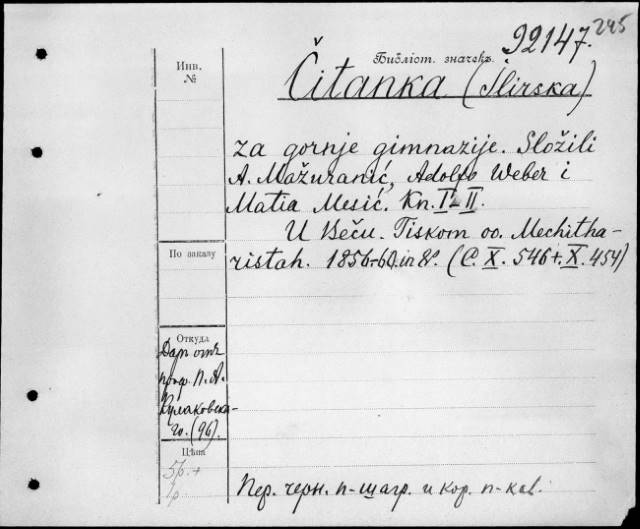 92147.
245
Инв.
№
Библіот. значекъ.
Čitanka (Ilirska)
za gornje gimnazije. Složili
A. Mažuranić, Adolfo Weber i
Matia Mesić. Kn. I-II.
U Beču. Tiskom oo. Mechitha-
ristah. 1856-60. in 8º. (C. X. 546 + X. 454)
По заказу
Откуда
Даръ отъ
проф. П. А.
Кулаковска-
го. (96).
Цѣна
5р. +
Пер. черн. п-шагр. и кор. п-кал.